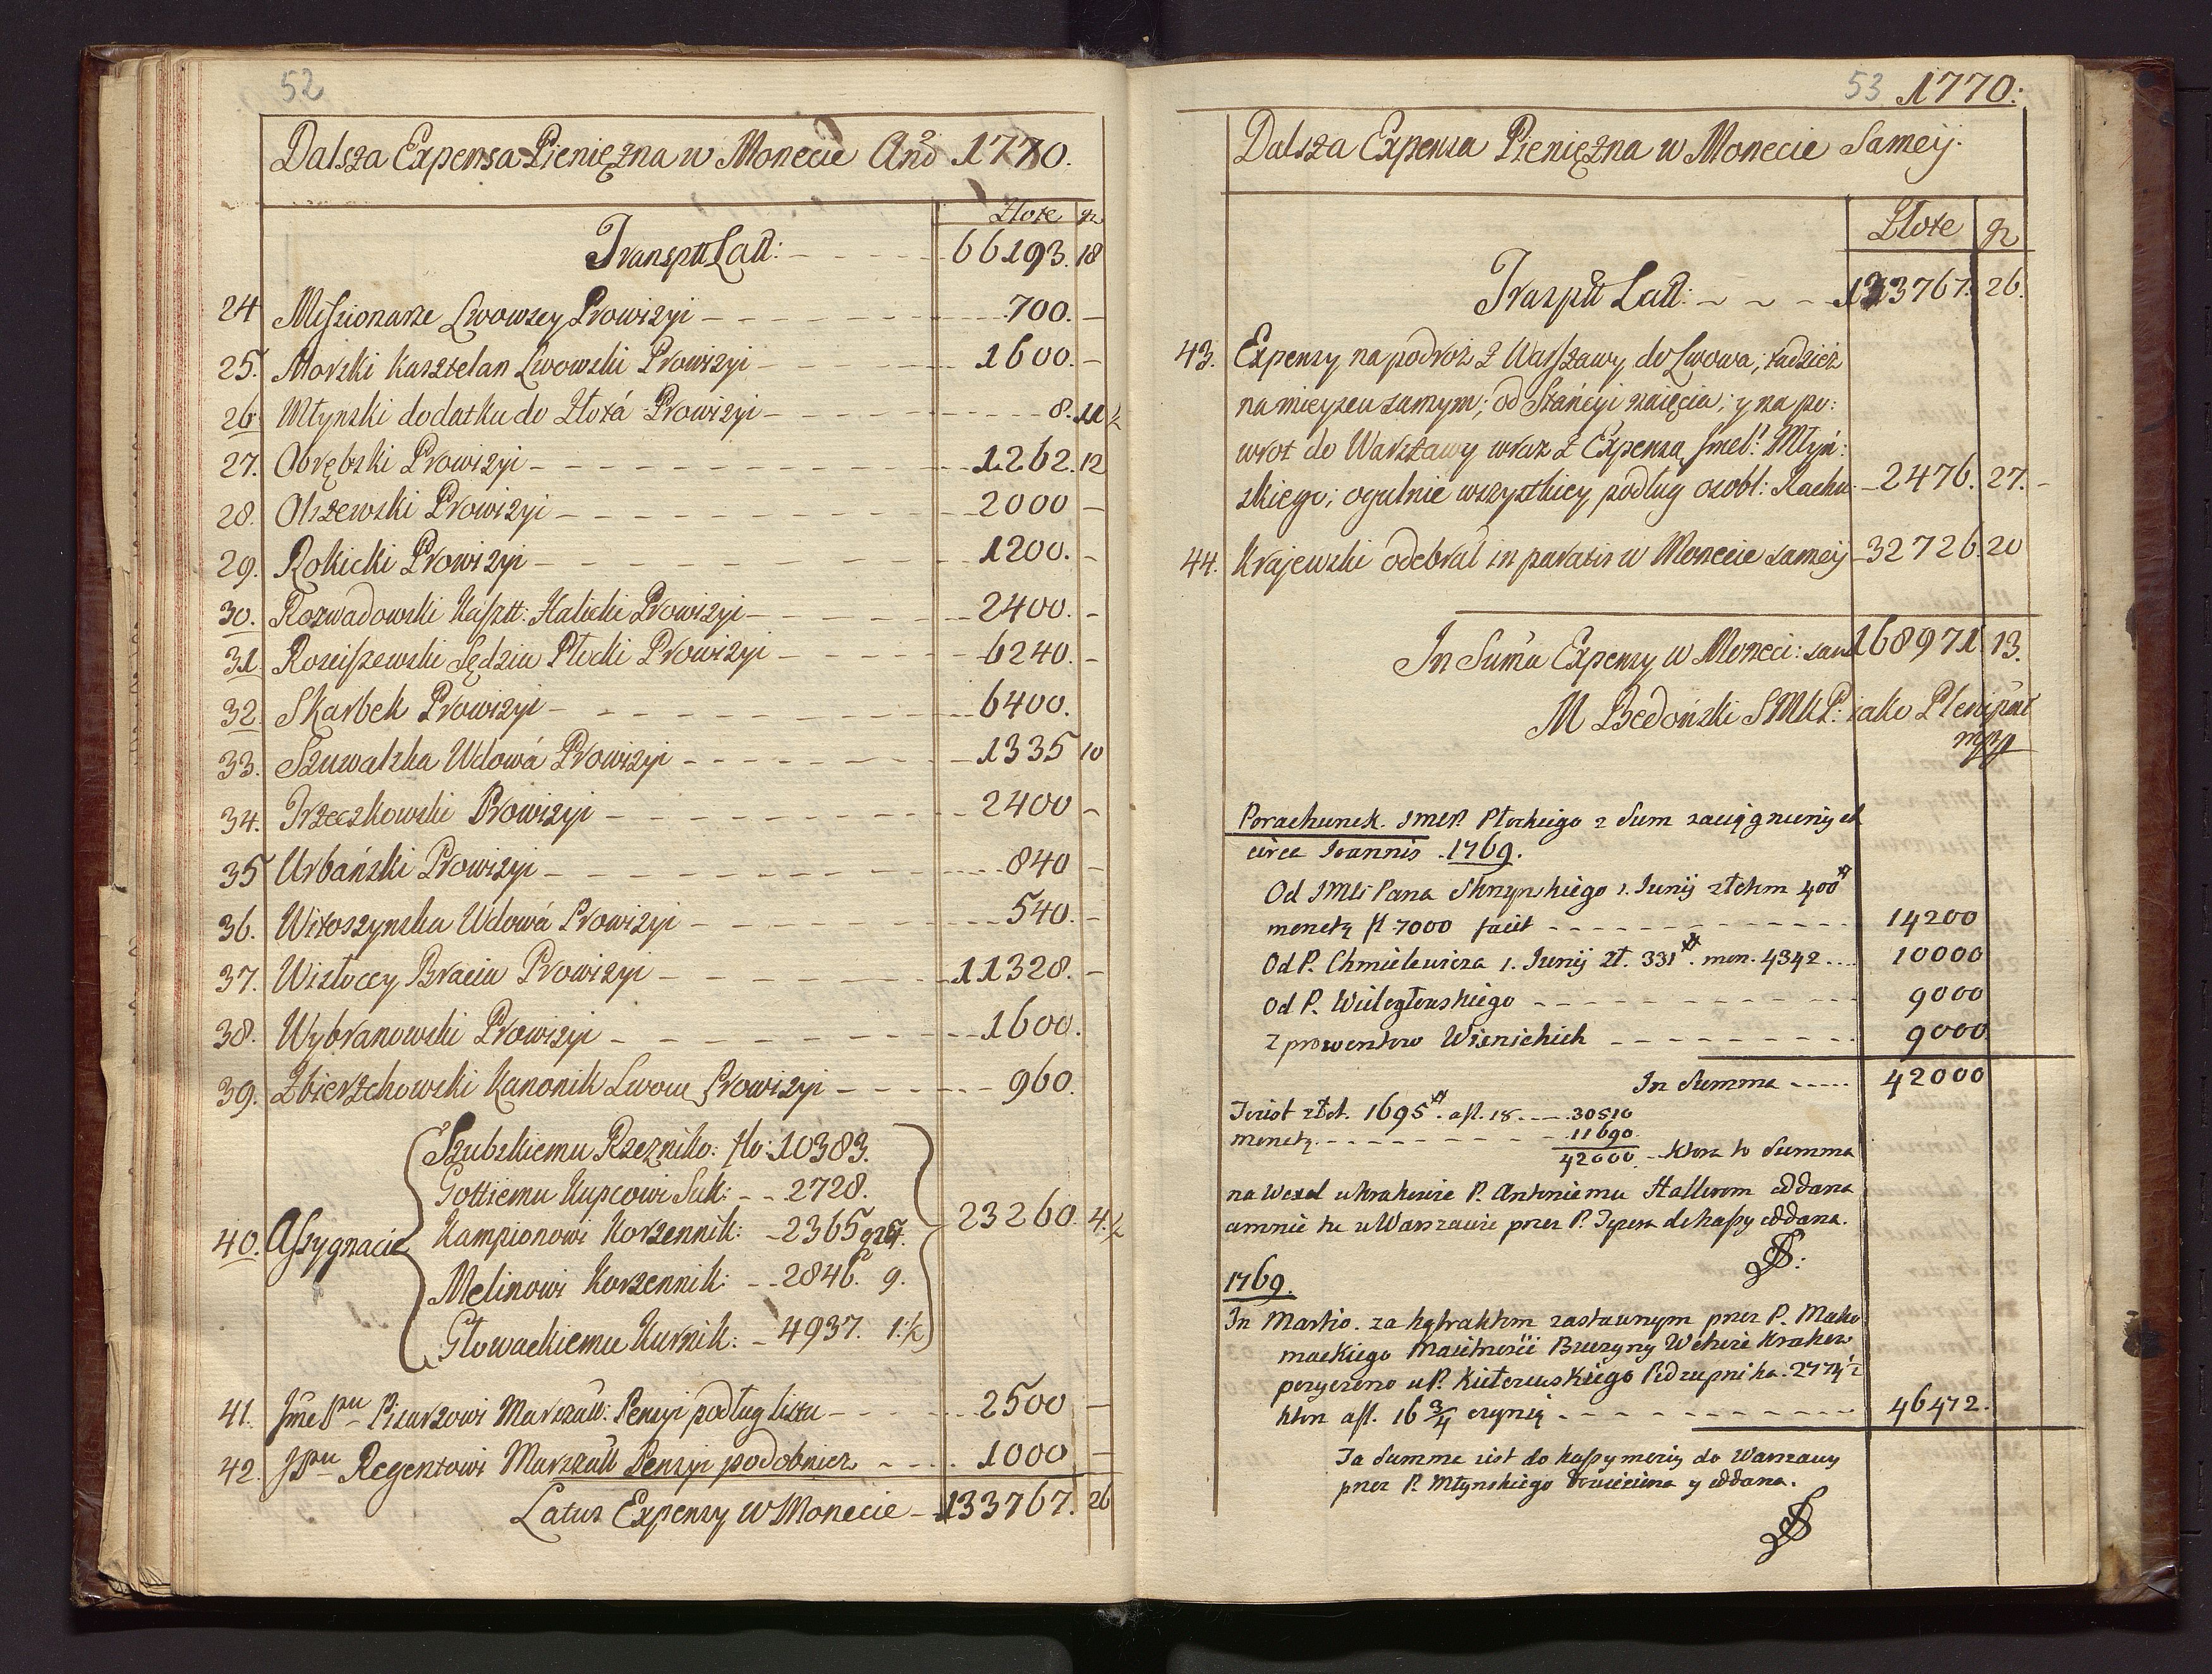 52
Dalsza Expensa Pieniężna w Monecie Ano 1770.
Złote gr
Transptt Latt: 66193. 18
24 Missionarze Lwowscy Prowizyi 700. –
25. Morski Kasztelan Lwowski Prowizyi 1600. –
26 Młynski dodatku do Złotá Prowizyi 8. 11½
27. Obrębski Prowizyi 1262. 12
28. Olszewski Prowizyi 2000 –
29. Rokicki Prowizyi 1200. –
30. Rozwadowski Kasztt: Halicki Prowizyi 2400. –
31 Rościszewski Sędzia Płocki Prowizyi 6240. –
32. Skarbek Prowizyi 6400.
33. Szuwalska Wdowá Prowizyi 1335 10
34. Trzeczkowski Prowizyi 2400 –
35 Urbański Prowizyi 840 –
36. Witoszynska Wdowá Prowizyi 540. –
37. Wisłoccy Bracia Prowizyi 11328. –
38. Wybranowski Prowizyi 1600.
39. Zbierzchowski Kanonik Lwow Prowizyi 960.
Szubskiemu Rzezniko: flo: 10383.
Gottiemu Kupcowi Suk: 2728.
40. Assygnacie Kampionowi Korzennik: 2365 23260. 4½
Melinowi Korzennik: 2846. 9.
Głowackiemu Kurnik: 4937. 1.½
41. Jme Pu Pisarzowi Marszałł: Pensyi podług listu 2500 –
42. JPu Regentowi Marszałł Pensyi podobniez 1000 –
Latus Expensy w Monecie 133767. 26
53 1770:
Dalsza Expensa Pieniężna w Monecie Samey.
Złote gr
Trasptt Latt: 133767. 26.
43. Expensy na podroż z Warszawy do Lwowa, tudzież
na mieyscu samym; od Stáncyi naięcia; y na po:
wrot do Warszawy wraz z Expensą Jmci P. Młyń:
skiego; ogulnie wszystkiey, podług osobl: Rachu 2476. 27.
44. Krajewski odebrał in paratis w Monecie samey 32726. 20
In Suma Expensy w Moneci: sam 168971 13.
M Bedoński SMKP: iako Plenipnt
mpp
Porachunek JmćP. Płockiego z Sum zaciągnionych
circa Joannis 1769.
Od JMći Pana Skrzynskiego 1. Junij złotem 400#
monetą fl 7000 facit 14200
Od P. Chmielewicza 1. Junij zł. 331#. mon. 4342 10000
Od P. Wielogłowskiego 9000
z prowentow Wisnickich 9000
In Summa 42000
To iest złot. 1695#. a fl. 18. 30510
monetą 11690.
42000. Ktora to Summa
na Wexel w Krakowie P. Antoniemu Hallerom oddana
a mnie tu w Warszawie przez P. Tepera do kassy oddana.
1769.
In Martio. za kontraktem zastawnym przez P. Mako
mackiego Maiętnosci Brzezyny Wektorie Krakow
pozyczono u P. Kutowskiego Podzupnika. 2774½
ktore a fl. 16 3/4 czynią 46472.
Ta Summa iest do kassy moiey do Warszawy
przez P. Młynskiego przywieziona y oddana.